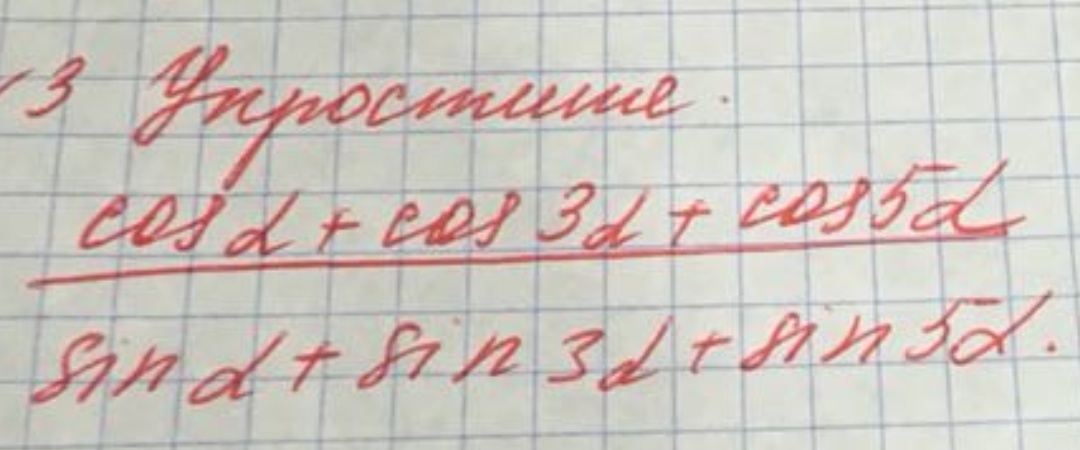 √3 Упростите.
cos α + cos 3α + cos 5α
sin α + sin 3α + sin 5α.